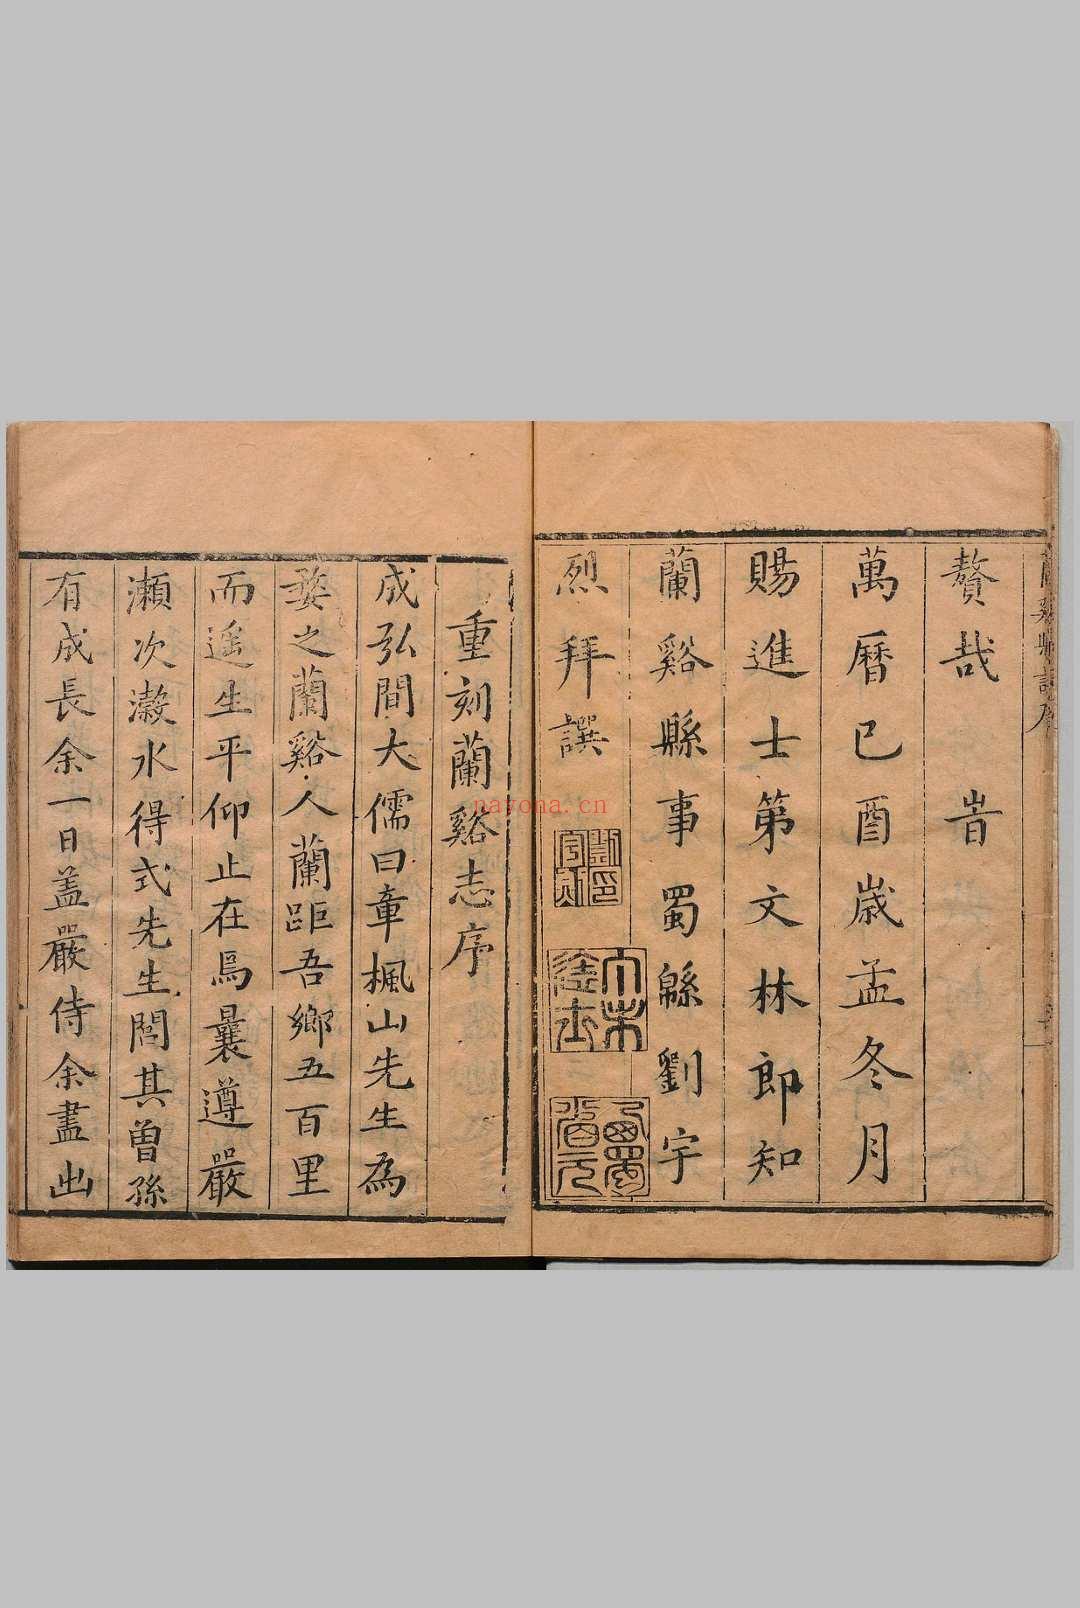 贅哉 旹
萬曆己酉歲孟冬月
賜進士第文林郎知
蘭谿縣事蜀緜劉宇
烈拜譔
重刻蘭谿志序
成弘間大儒曰章楓山先生為
婺之蘭谿人蘭距吾鄉五百里
而遥生平仰止在焉曩遵嚴
瀨次瀫水得式先生閭其曾孫
有成長余一日盖嚴侍余晝出
nayona.cn